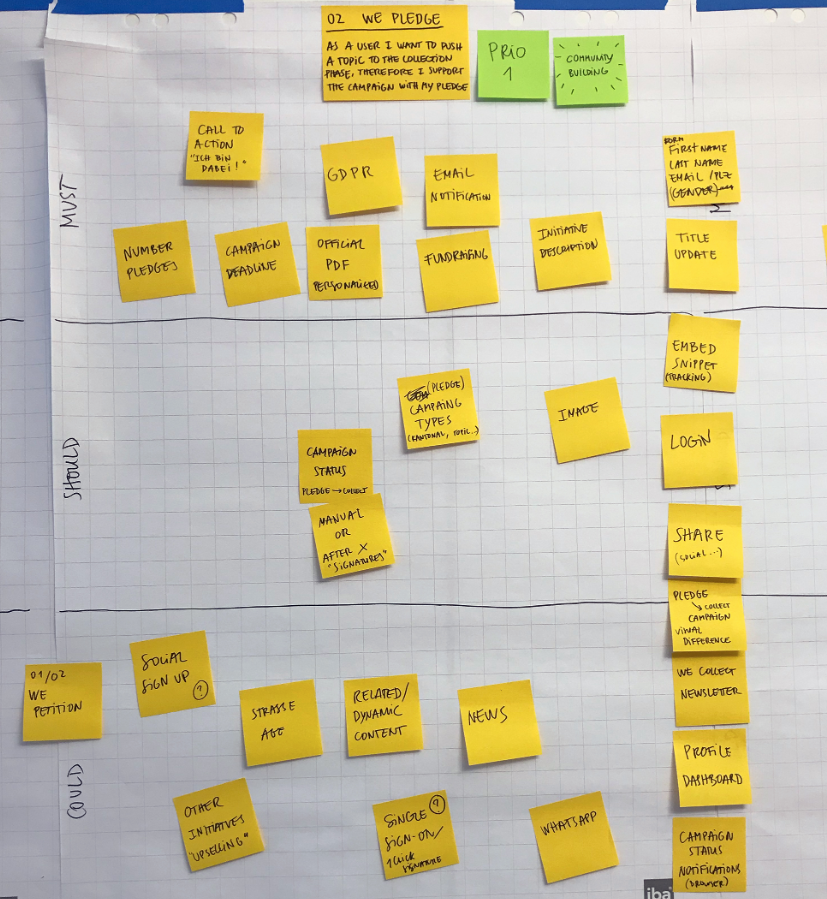 02 WE PLEDGE
AS A USER I WANT TO PUSH
A TOPIC TO THE COLLECTION
PHASE, THEREFORE I SUPPORT
THE CAMPAIGN WITH MY PLEDGE
PRIO
1
COMMUNITY
BUILDING
MUST
CALL TO
ACTION
"ICH BIN
DABEI!"
GDPR
EMAIL
NOTIFICATION
FORM
FIRST NAME
LAST NAME
EMAIL / PLZ
(GENDER)
NUMBER
PLEDGES
CAMPAIGN
DEADLINE
OFFICIAL
PDF
PERSONALIZED
FUNDRAISING
INITIATIVE
DESCRIPTION
TITLE
UPDATE
SHOULD
EMBED
SNIPPET
(TRACKING)
(PLEDGE)
CAMPAING
TYPES
(KANTONAL, TOPIC...)
IMAGE
LOGIN
CAMPAIGN
STATUS
PLEDGE → COLLECT
MANUAL
OR
AFTER X
"SIGNATURES"
SHARE
(SOCIAL...)
PLEDGE
↘ COLLECT
CAMPAIGN
VISUAL
DIFFERENCE
COULD
01/02
WE
PETITION
SOCIAL
SIGN UP
?
STRASSE
AGE
RELATED/
DYNAMIC
CONTENT
NEWS
WE COLLECT
NEWSLETTER
PROFILE
DASHBOARD
OTHER
INITIATIVES
"UPSELLING"
SINGLE ?
SIGN-ON/
1 CLICK
SIGNATURE
WHATSAPP
CAMPAIGN
STATUS
NOTIFICATIONS
(BROWSER)
iba